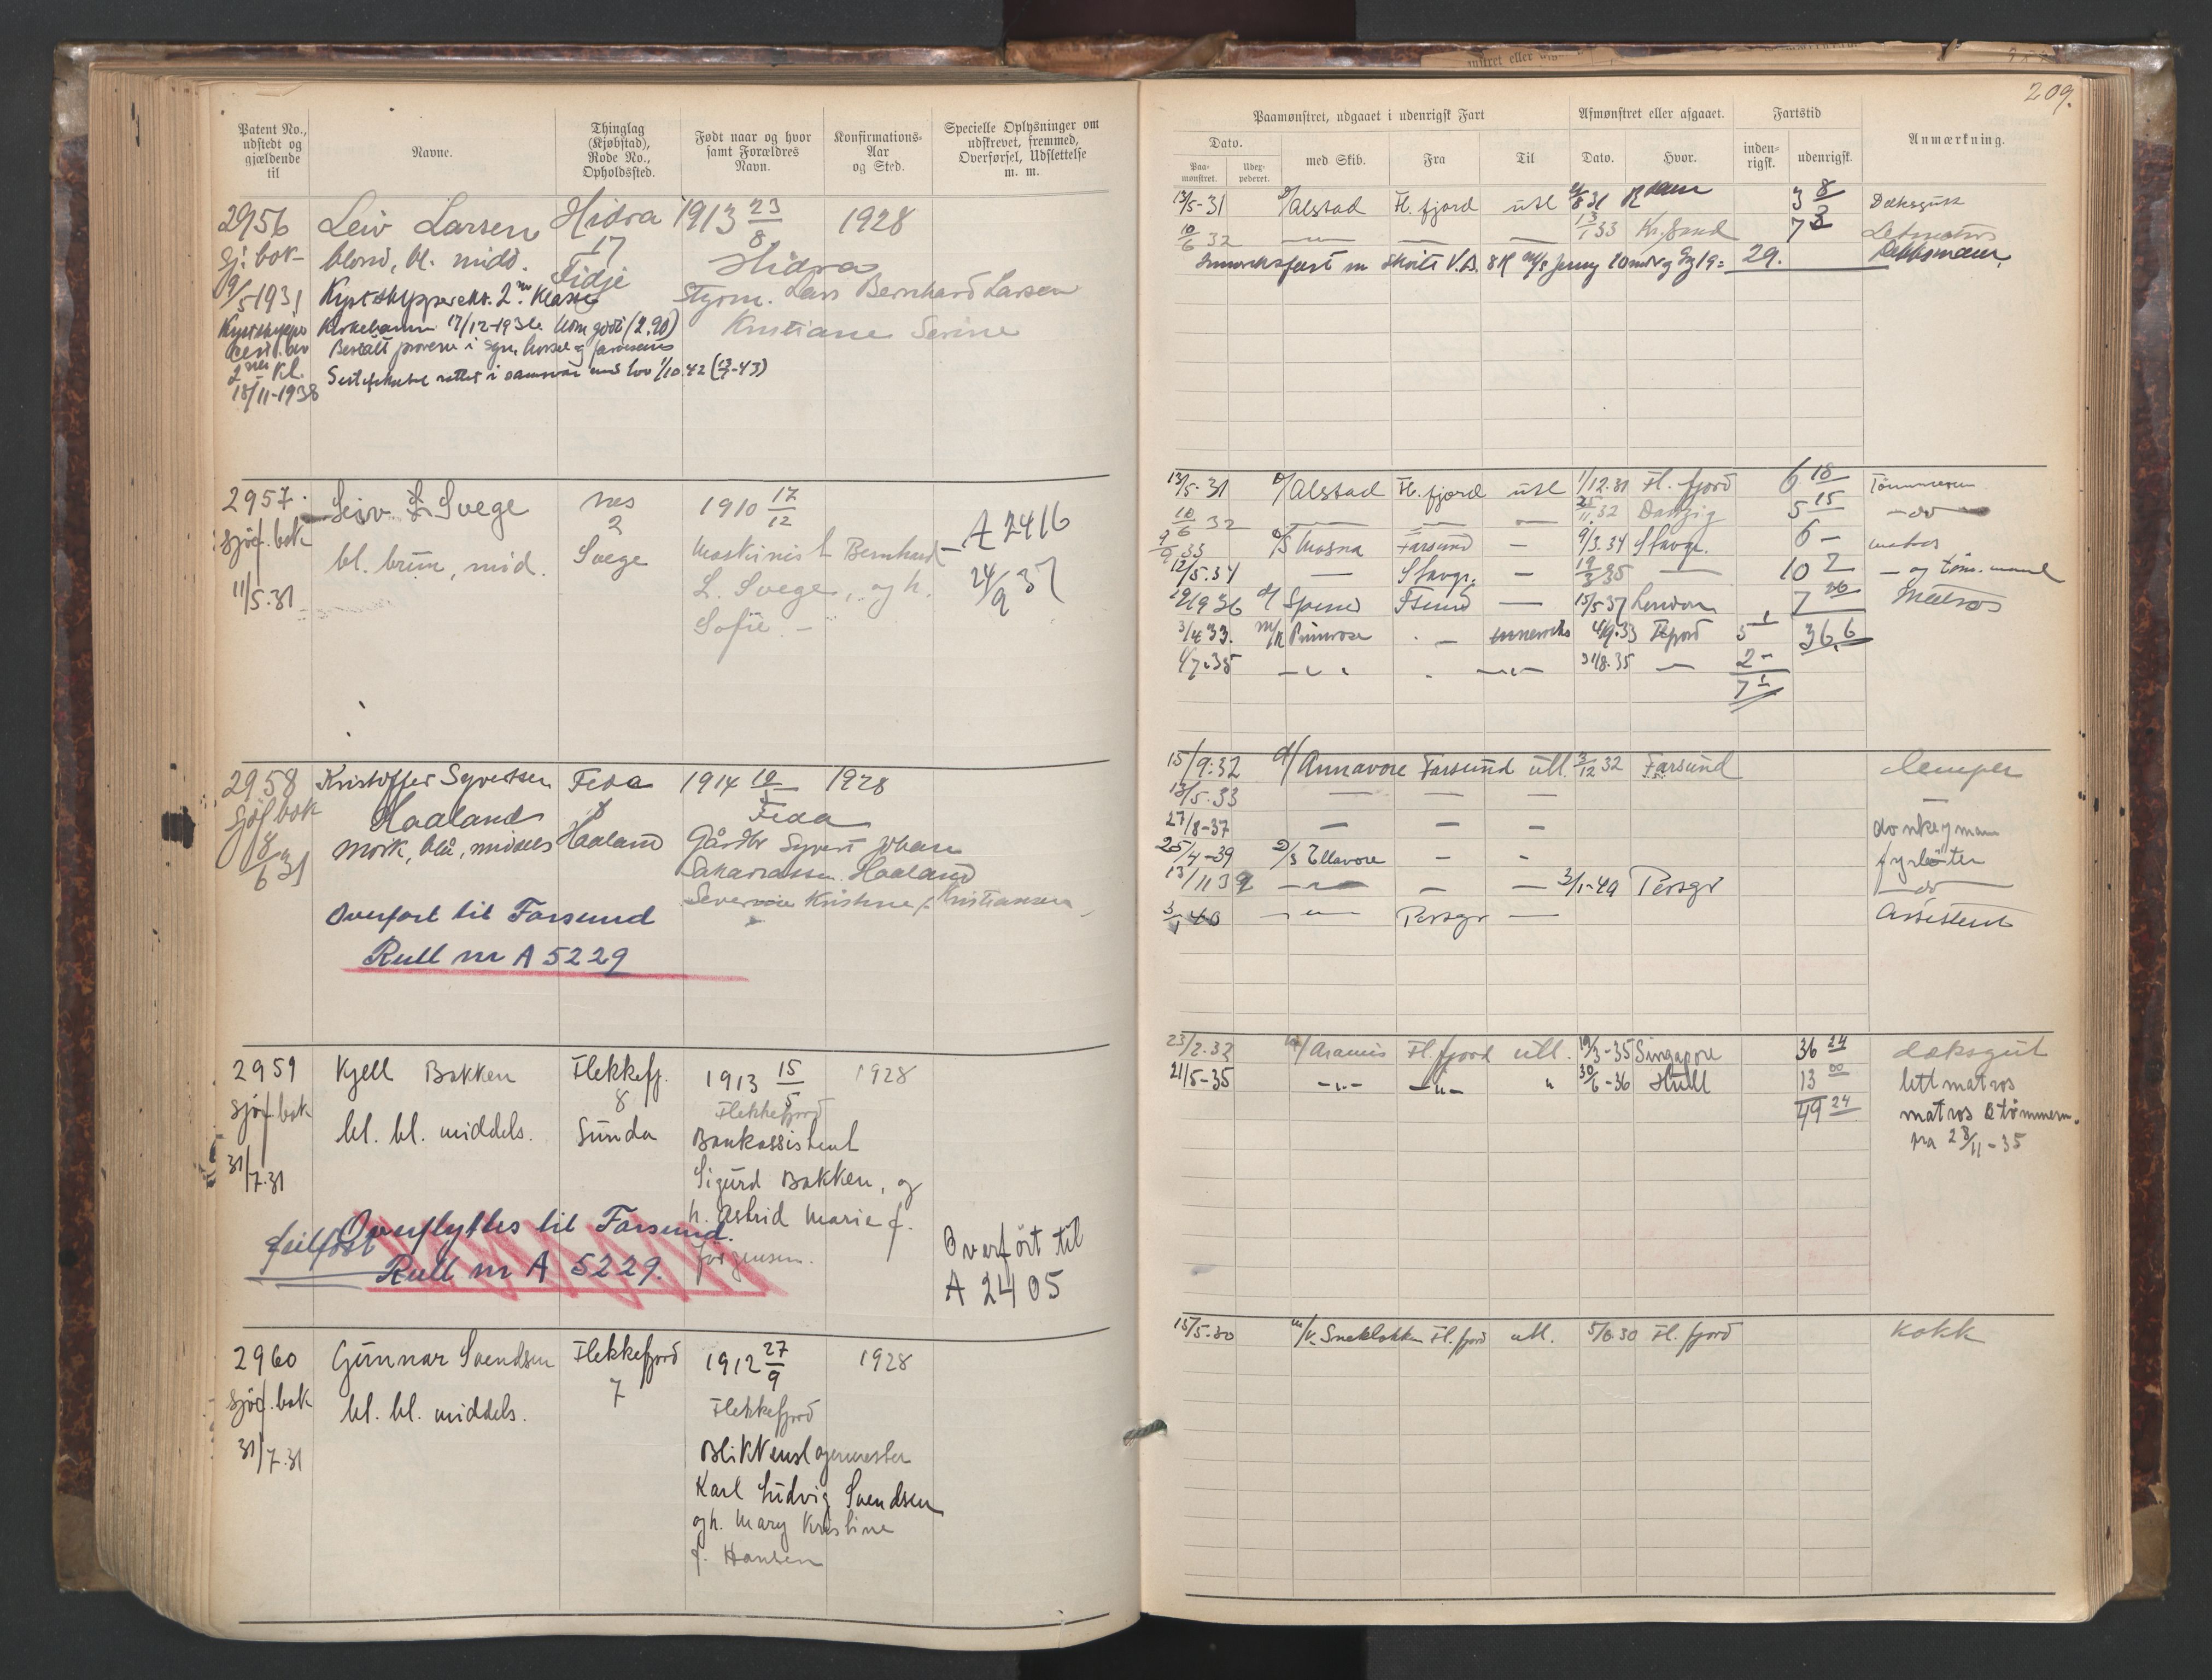 209.
Patent No., udstedt og gjældende til
Navne.
Thinglag (Kjøbstad), Rode No., Opholdssted.
Født naar og hvor samt Forældres Navn.
Konfirmations-Aar og Sted.
Specielle Oplysninger om udskrevet, fremmed, Overførsel, Udslettelse m. m.
Paamønstret, udgaaet i udenrigsk Fart
Afmønstret eller afgaaet.
Fartstid
Anmærkning.
Dato.
Paa-mønstret.
Udex-pederet.
med Skib.
Fra
Til
Dato.
Hvor.
inden-rigsk.
udenrigsk.
2956 Leiv Larsen Hidra 1913 23/8 1928
17
Sj. bok blond, bl. midd. Fidje Hidra
19/5 1931 Kystskippersert. 2. Klasse Styrm. Lars Bernhard Larsen
Kirkehavn 17/12-1936 Kristiane Serine
Bestått prøvene i syn, hørsel og farvesans
2 Kl.
18/11-1938
13/5-31 D/ Alstad Fl.fjord utl 31 R.dam 3 8 Deksgutt
10/6 32 13/1 33 Kr.sand 7 3 Letmatros
29. Dekksmann
2957 Leiv L Svege Nes 1910 17/12
2
sjøf. bok bl. brun, mid. Svege Maskinist Bernhard A 2416
11/5.31 L. Svege, og h. 24/9 37
Sofie
13/5.31 D/ Alstad Fl. fjord utl 1/12.31 Fl. fjord 6 18 Tømmerm
10/6 32 11.32 Danzig 5 15 do
9/9 33 D/S Mosna Farsund 9/3.34 Stavgr. 6 - matros
12/5.34 Stavgr. 19/3 35 10 2 og tøm.mand
29/9 36 15/5 37 London 7 Matros
3/4 33. M/K Primrose innenriks 4/9.33 Fl.fjord 5 1 36 6
1/7.35 31/8.35 2 -
7 1
2958 Kristoffer Syvertsen Feda 1914 1928
Sjøf bok Haaland Feda
8/6 31 Mørk, blå, middels Haaland Gårdbr Syvert Johan
Sakariassen Haaland
Severine Kristine f. Kristiansen
Overført til Farsund
Rull nr A 5229
15/9.32 d/ Annavore Farsund utl. 3/12 32 Farsund lemper
13/5.33
27/8-37 donkeymann
25/4-39 D/S Ellavore fyrbøter
13/11 39 3/1-40 Porsgr do
3/1 40 Porsgr Assistent
2959 Kjell Bakken Flekkefj. 1913 15/5 1928
8 Flekkefjord
sjøf. bok bl. bl. middels. Sunda Bankassistent
31/7.31 Sigurd Bakken, og
h. Astrid Marie f.
Jørgensen.
Overflyttes til Farsund.
feilført
Rull nr A 5229.
Overført til
A 2405
23/2.32 M/ Aramis Fl. fjord utl. 19/3-35 Singapore 36 24 deksgut
21/5-35 30/6-36 Hull 13 00 lettmatros
49 24 matros & tømmerm.
fra 23/11-35
2960 Gunnar Svendsen Flekkefjord 1912 27/9 1928
7
sjøf. bok bl. bl. middels. Flekkefjord
31/7.31 Blikkenslagermester
Karl Ludvig Svendsen
og h. Mary Kristine
f. Hansen
15/5.30 Fl. fjord utl. 5/8.30 Fl. fjord Kokk